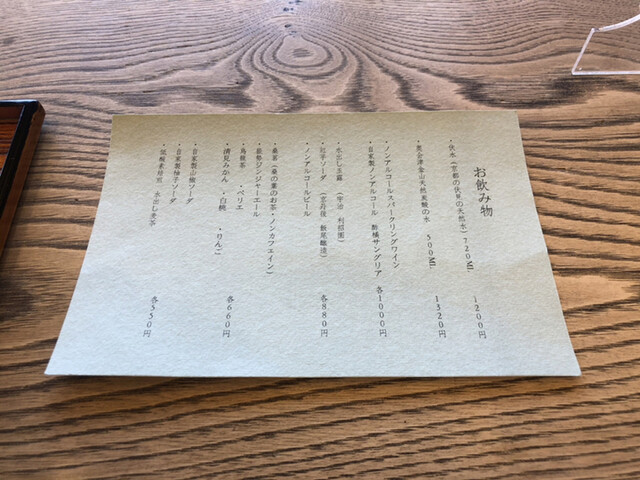 お飲み物
・伏水(京都の伏見の天然水)720ML 1200円
・奥会津金山天然炭酸の水 500ML 1320円
・ノンアルコールスパークリングワイン
・自家製ノンアルコール 酢橘サングリア 各1000円
・水出し玉露 (宇治 利招園)
・紅芋ソーダ(京丹後 飯尾醸造)
・ノンアルコールビール 各880円
・桑茶(桑の葉のお茶・ノンカフェイン)
・能勢ジンジャーエール
・烏龍茶 ・ペリエ
・清見みかん ・白桃 ・りんご 各660円
・自家製山椒ソーダ
・自家製柚子ソーダ
・低酸素焙煎 水出し麦茶 各550円